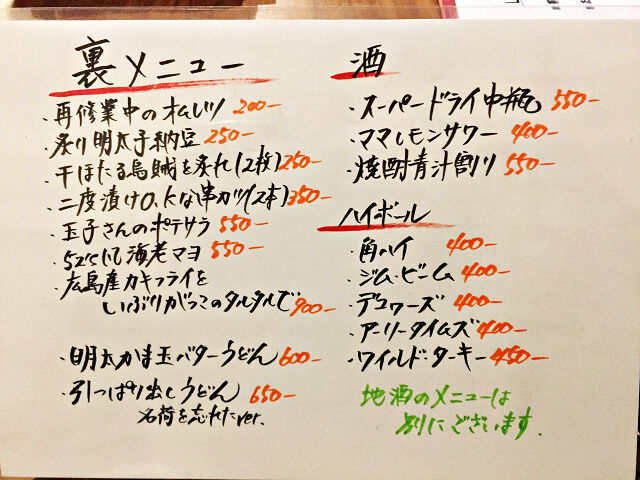 裏メニュー
・再修業中のオムレツ 200-
・炙り明太子納豆 250-
・干ほたる烏賊を炙れ(12枚) 250-
・二度漬けO.Kな串カツ(2本) 350-
・玉子さんのポテサラ 550-
・525にし海老マヨ 550-
・広島産カキフライを
いぶりがっこのタルタルで 900-
・明太かま玉バターうどん 600-
・引っぱり出しうどん 650-
名荷を忘れたver.
酒
・スーパードライ中瓶 550-
・ママレモンサワー 400-
・焼酎青汁割り 550-
ハイボール
・角ハイ 400-
・ジム・ビーム 400-
・デュワーズ 400-
・アーリータイムズ 400-
・ワイルド・ターキー 450-
地酒のメニューは
別にございます.